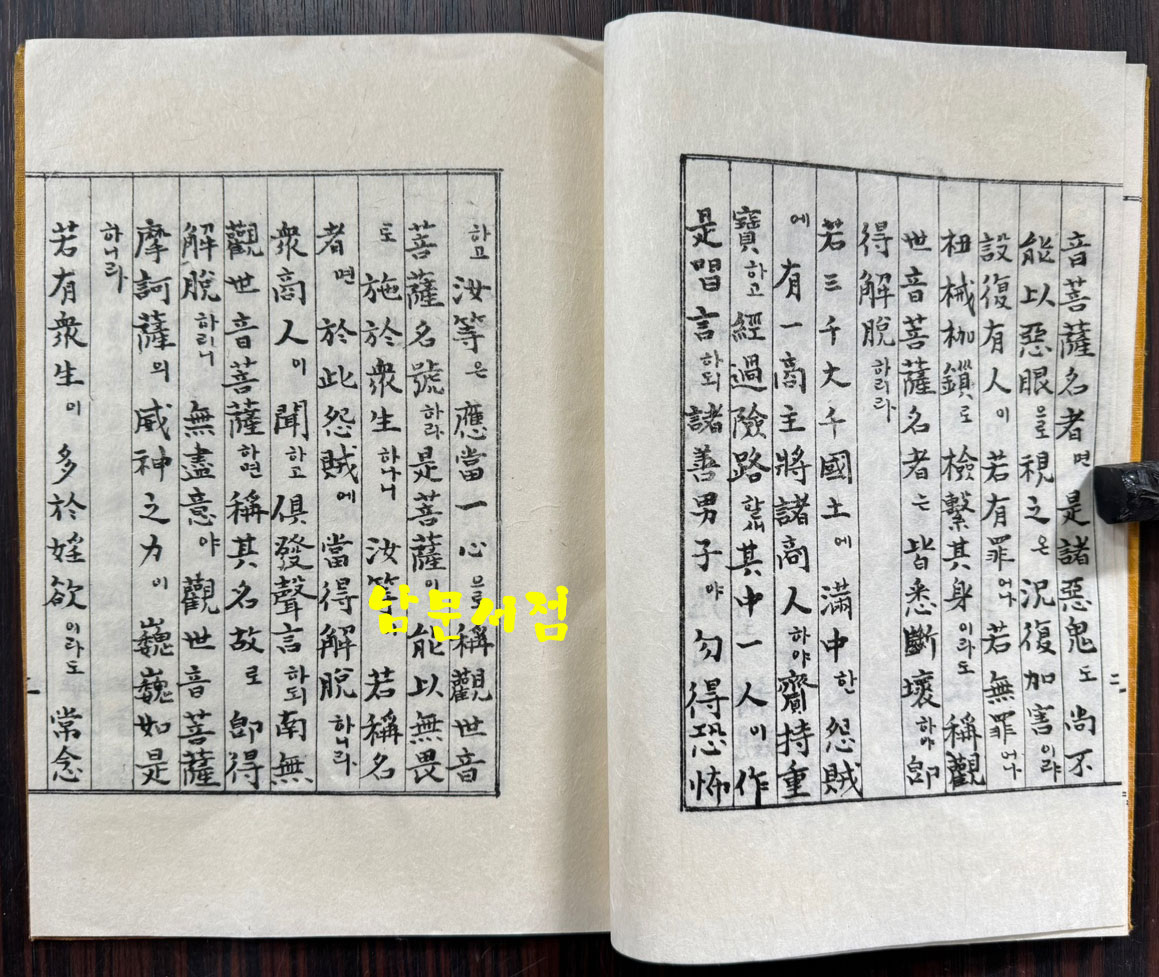 音菩薩名者면 是諸惡鬼도 尚不
能以惡眼으로視之온 況復加害이랴
設復有人이 若有罪어나 若無罪어나
杻械枷鎖로 檢繫其身이라도 稱觀
世音菩薩名者는 皆悉斷壞하야 卽
得解脫하리라
若三千大千國土에 滿中한 怨賊
에 有一商主將諸商人하야 齎持重
寶하고 經過險路할새 其中一人이 作
是唱言하되 諸善男子야 勿得恐怖
二
하고 汝等은 應當一心으로 稱觀世音
菩薩名號하라 是菩薩이 能以無畏
로 施於衆生하나니 汝等 若稱名
者면 於此怨賊에 當得解脫하니라
衆商人이 聞하고 俱發聲言하되 南無
觀世音菩薩하면 稱其名故로 卽得
解脫하리니 無盡意야 觀世音菩薩
摩訶薩의 威神之力이 巍巍如是
하니라
若有衆生이 多於婬欲이라도 常念
남문서점